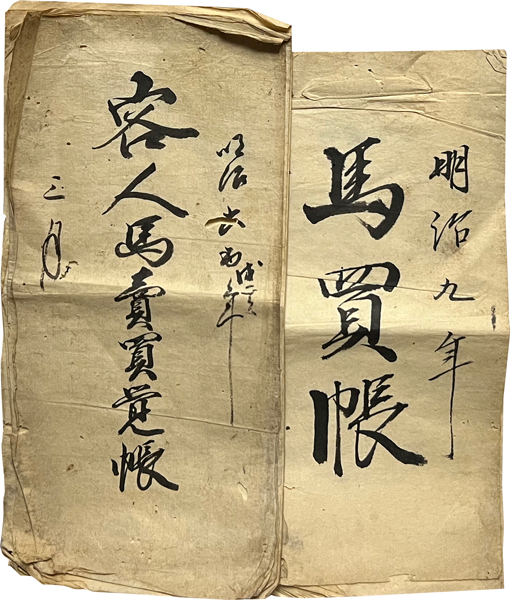 明治九年
馬買帳
明治六
年
客人馬賣買覚帳
三月